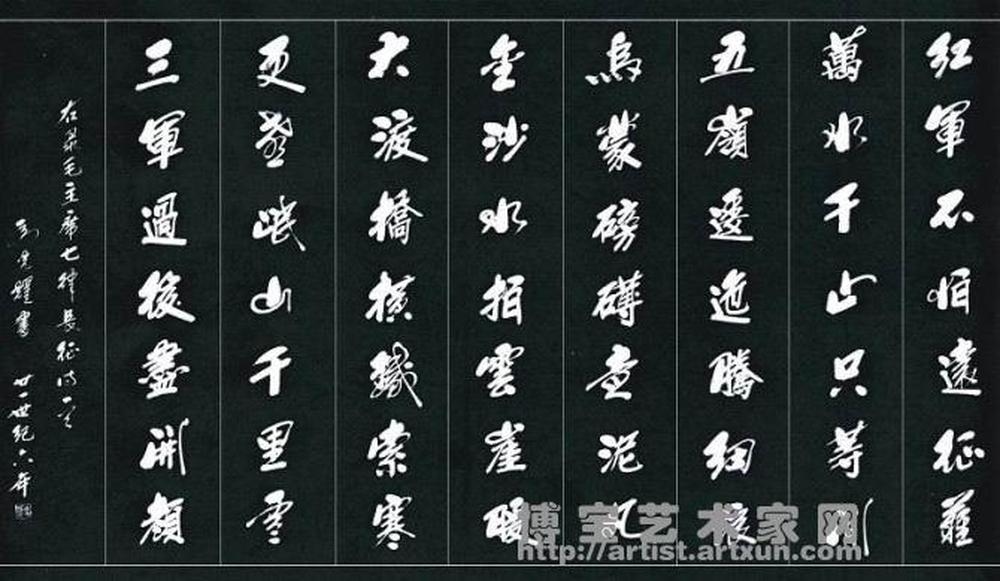 紅軍不怕遠征難
萬水千山只等閑
五嶺逶迤騰細浪
烏蒙磅礴走泥丸
金沙水拍雲崖暖
大渡橋橫鐵索寒
更喜岷山千里雪
三軍過後盡開顏
右录毛主席七律長征诗一首
耀書 廿一世紀六年
博宝艺术家网
http://artist.artxun.com